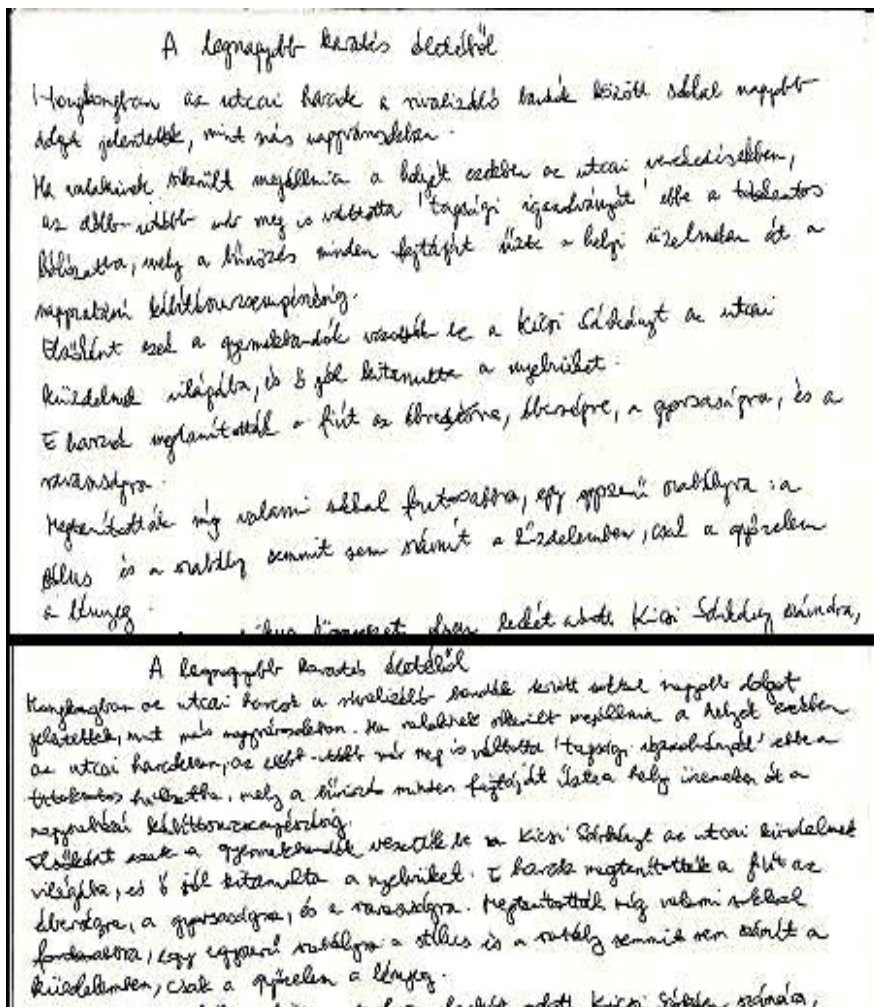 A legnagyobb karatés életéből
Hongkongban az utcai harcok a rivalizáló bandák között sokkal nagyobb
dolgot jelentettek, mint más nagyvárosokban.
Ha valakinek sikerült megállnia a helyét ezekben az utcai verekedésekben,
az előbb-utóbb már meg is váltotta 'tagsági igazolványát' ebbe a titokzatos
hálózatba, mely a bűnözés minden fajtáját űzte a helyi üzelmeken át a
nagyhatású kábítószercsempészésig.
Elsőként ezek a gyermekbandák vezették be a Kicsi Sárkányt az utcai
küzdelmek világába, és ő jól kitanulta a nyelvüket.
E harcok megtanították a fiút az éberségre, a gyorsaságra, és a
ravaszságra.
Megtanították még valami sokkal fontosabbra, egy egyszerű szabályra: a
stílus és a szabály semmit sem számít a küzdelemben, csak a győzelem
a lényeg.
adott Kicsi Sárkány számára,
A legnagyobb karatés életéből
Hongkongban az utcai harcok a rivalizáló bandák között sokkal nagyobb dolgot
jelentettek, mint más nagyvárosokban. Ha valakinek sikerült megállnia a helyét ezekben
az utcai harcokban, az előbb-utóbb már meg is váltotta 'tagsági igazolványát' ebbe a
titokzatos hálózatba, mely a bűnözés minden fajtáját űzte a helyi üzelmeken át a
kábítószercsempészésig.
Elsőként ezek a gyermekbandák vezették be a Kicsi Sárkányt az utcai küzdelmek
világába, és ő jól kitanulta a nyelvüket. E harcok megtanították a fiút az
éberségre, a gyorsaságra, és a ravaszságra. Megtanították még valami sokkal
fontosabbra, egy egyszerű szabályra a stílus és a szabály semmit sem számít a
küzdelemben, csak a győzelem a lényeg.
adott Kicsi Sárkány számára